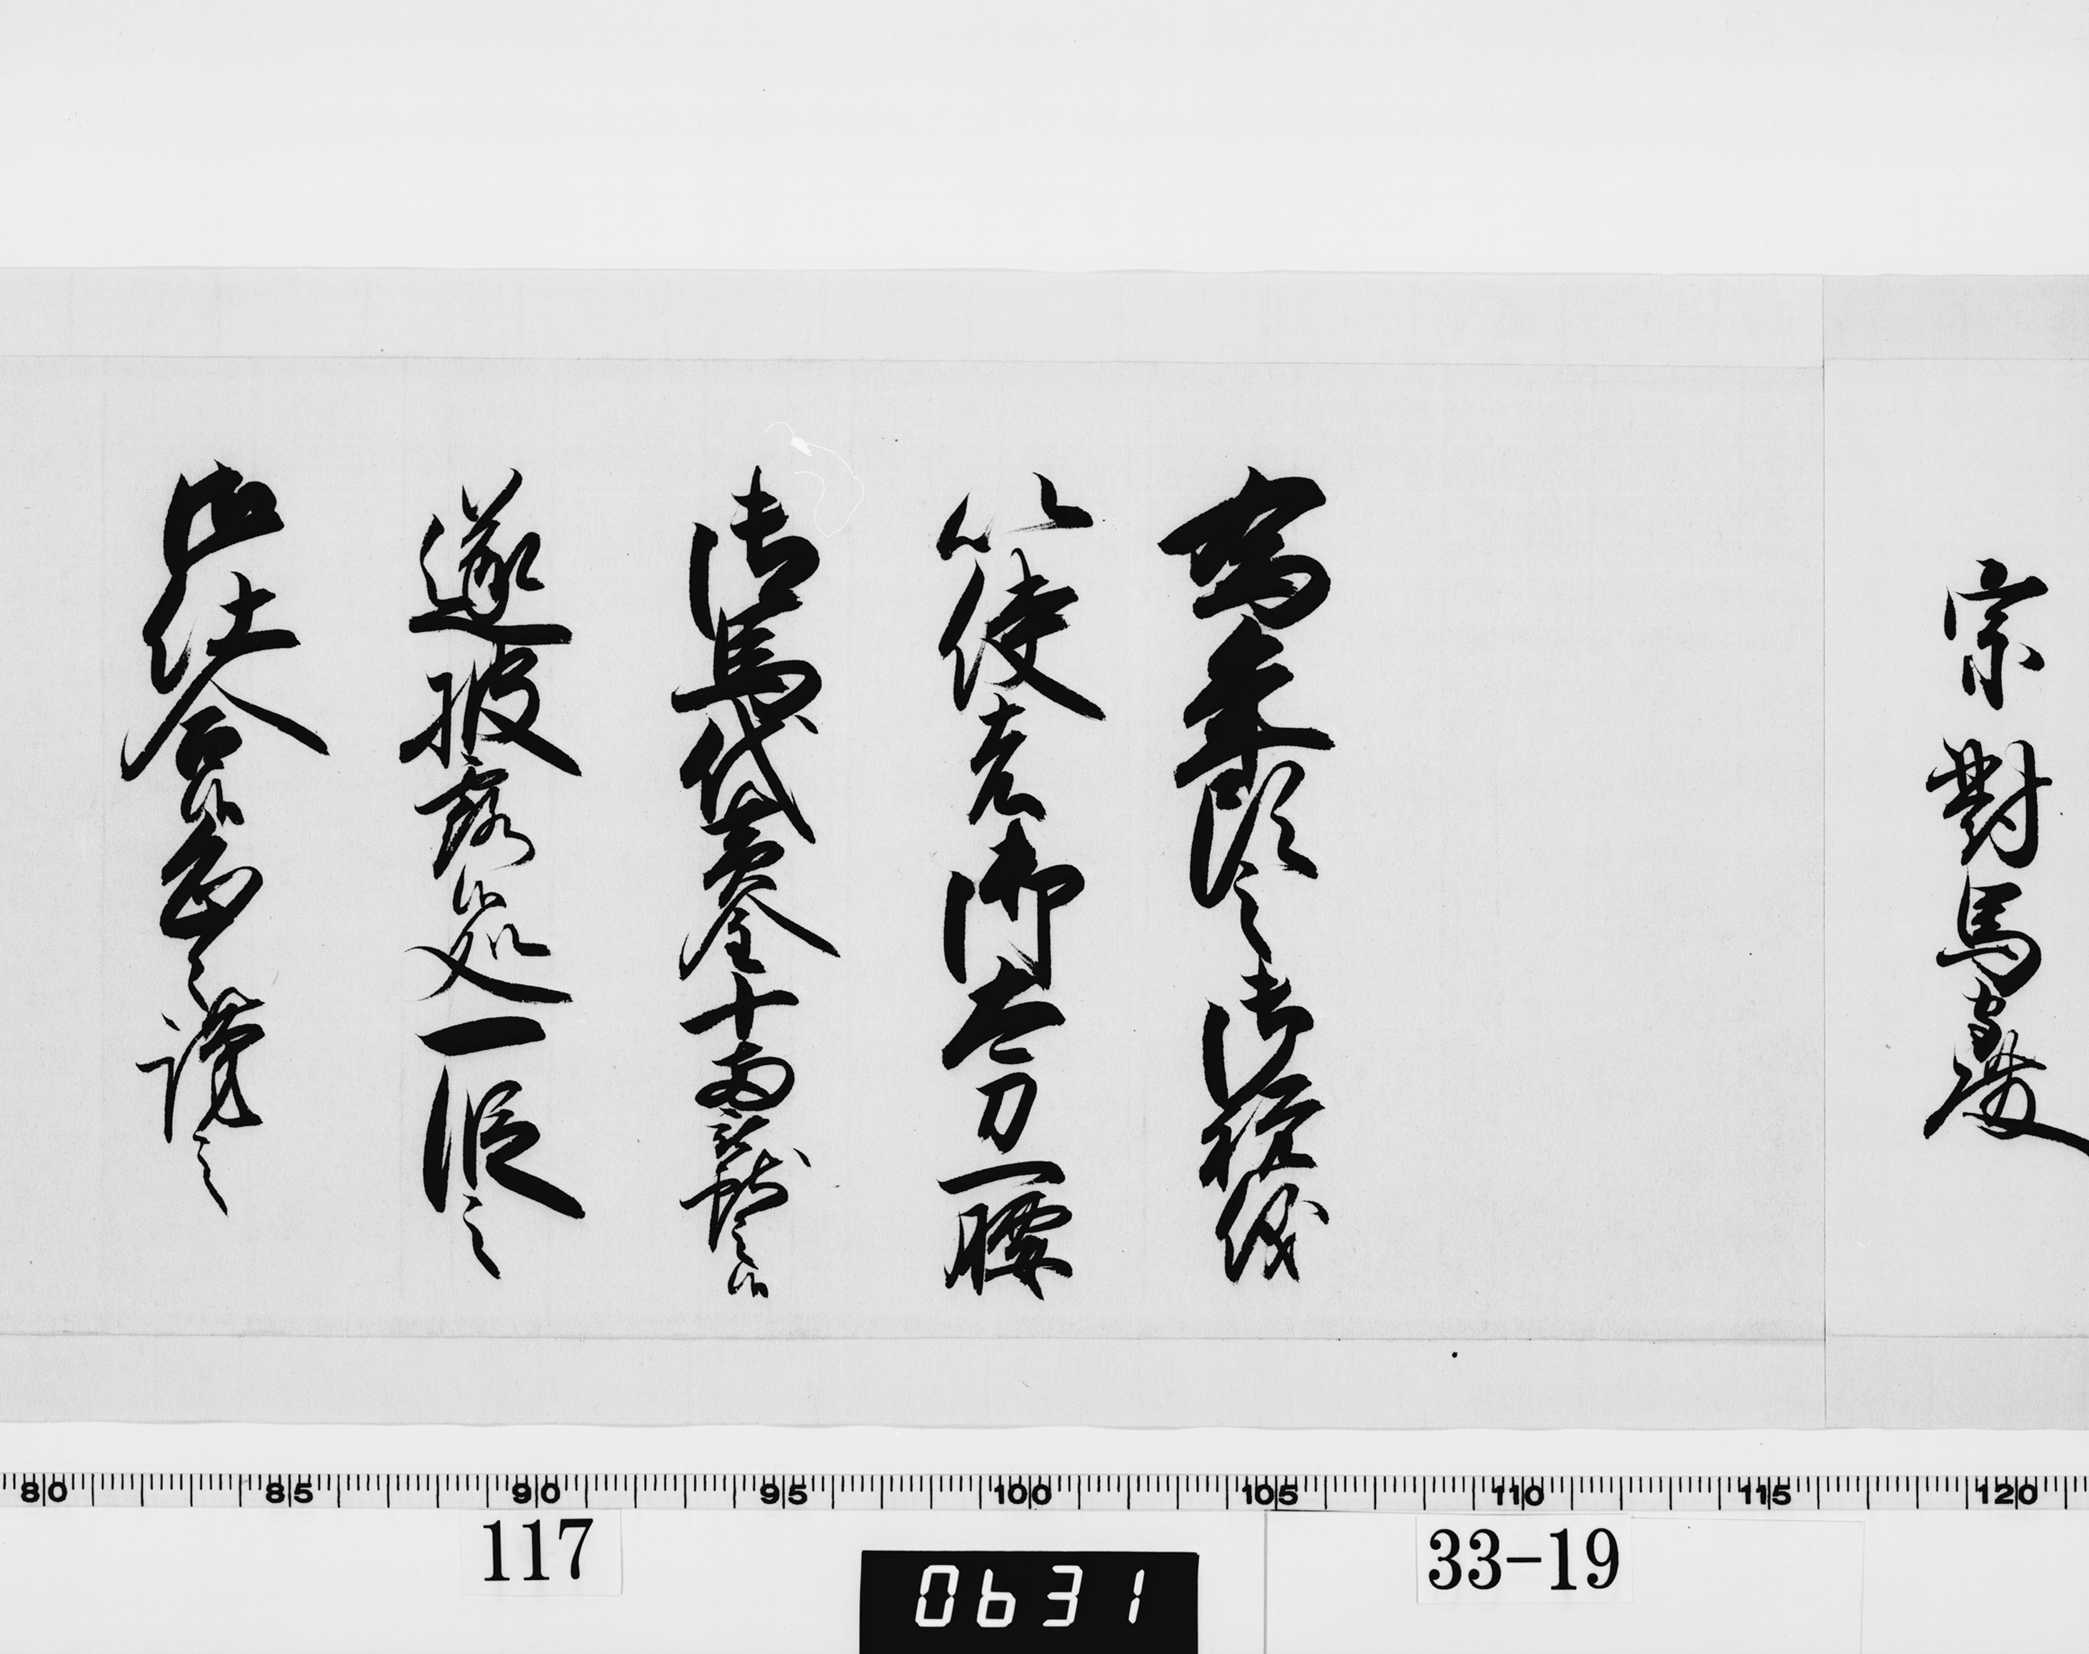 宗對馬守殿
為年頭之御祝儀
以使者御太刀一腰
御馬代黄金十両献之候
遂披露候処一段之
御仕合候恐々謹言
80 85 90 95 100 105 110 115 120
117
0631
33-19